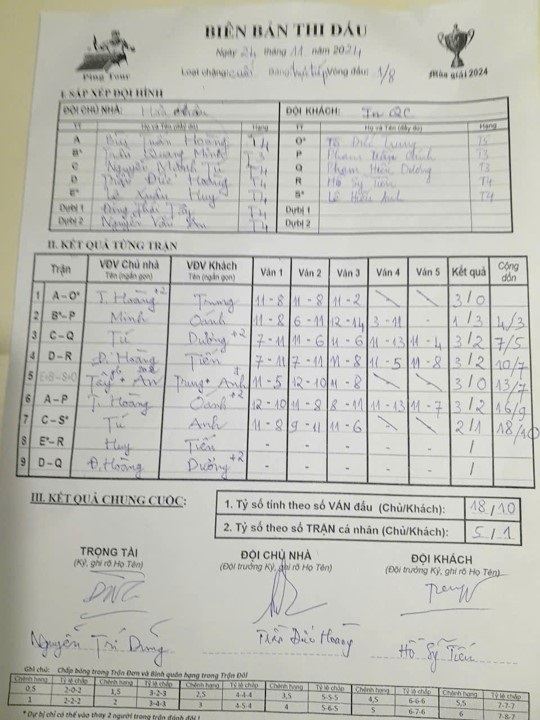 BIÊN BẢN THI ĐẤU
Ngày 24 tháng 11 năm 2024
Loại chặng: cuối Bảng: trực tiếp Vòng đấu: 1/8
Ping Tour
Mùa giải 2024
I. SẮP XẾP ĐỘI HÌNH
ĐỘI CHỦ NHÀ: ĐỘI KHÁCH: In QC
TT Họ và Tên (đầy đủ) Hạng TT Họ và Tên (đầy đủ) Hạng
A Bùi Tuấn Hoàng T4 O* Tô Đức Trung T5
B* Quang Minh T3 P Phạm Trần Oánh T3
C Nguyễn Khánh Tú T4 Q Phạm Hiển Dương T3
D Trần Đức Hoàng T4 R Hồ Sỹ Tiến T4
E* Lê Xuân Huy T4 S* Lê Hiển Anh T4
Dự bị 1 Đặng Thái Tây T4 Dự bị 1
Dự bị 2 Nguyễn Văn T4 Dự bị 2
II. KẾT QUẢ TỪNG TRẬN
Trận VĐV Chủ nhà Tên (ngắn gọn) VĐV Khách Tên (ngắn gọn) Ván 1 Ván 2 Ván 3 Ván 4 Ván 5 Kết quả Cộng dồn
1 A–O* T. Hoàng +2 Trung 11-8 11-8 11-2 - - 3/0
2 B*–P Minh Oánh 11-8 6-11 12-14 3-11 - 1/3 4/3
3 C–Q Tú Dương +2 7-11 11-6 11-6 11-13 11-4 3/2 7/5
4 D–R Đ. Hoàng Tiến 7-11 7-11 11-8 11-5 11-8 3/2 10/7
5 E+B–S+O Tây + An Trung + Anh 11-5 12-10 11-8 - - 3/0 13/7
6 A–P T. Hoàng Oánh +2 12-10 11-8 8-11 11-13 11-7 3/2 16/9
7 C–S* Tú Anh 11-8 9-11 11-6 2/1 18/10
8 E*–R Huy Tiến - - - - - /
9 D–Q Đ. Hoàng Dương +2 - - - - - /
III. KẾT QUẢ CHUNG CUỘC:
1. Tỷ số tính theo số VÁN đấu (Chủ/Khách): 18/10
2. Tỷ số theo số TRẬN cá nhân (Chủ/Khách): 5/1
TRỌNG TÀI ĐỘI CHỦ NHÀ ĐỘI KHÁCH
(Ký, ghi rõ Họ Tên) (Đội trưởng Ký, ghi rõ Họ Tên) (Đội trưởng Ký, ghi rõ Họ Tên)
Nguyễn Trí Dũng Trần Đức Hoàng Hồ Sỹ Tiến
Ghi chú: Chấp bóng trong Trận Đơn và Bình quân hạng trong Trận Đôi
Chênh hạng Tỷ lệ chấp Chênh hạng Tỷ lệ chấp Chênh hạng Tỷ lệ chấp Chênh hạng Tỷ lệ chấp Chênh hạng Tỷ lệ chấp Chênh hạng Tỷ lệ chấp
0,5 2-0-2 1,5 3-2-3 2,5 4-4-4 3,5 5-5-5 4,5 6-6-6 5,5 7-7-7
1 2-2-2 2 3-4-3 3 4-5-4 4 5-6-5 5 6-7-6 7-8-7
* Dự bị chỉ có thể vào thay 2 người trong trận đánh đôi !